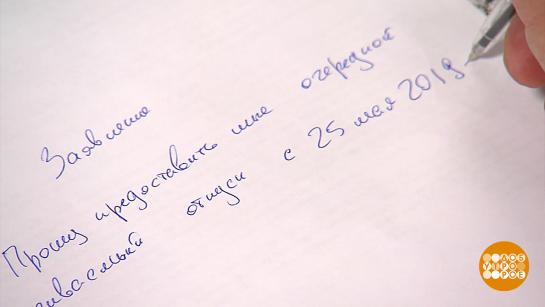 Заявление
Прошу предоставить мне очередной
отпуск с 25 мая 2019
ДОБ
УТРО
РОЕ